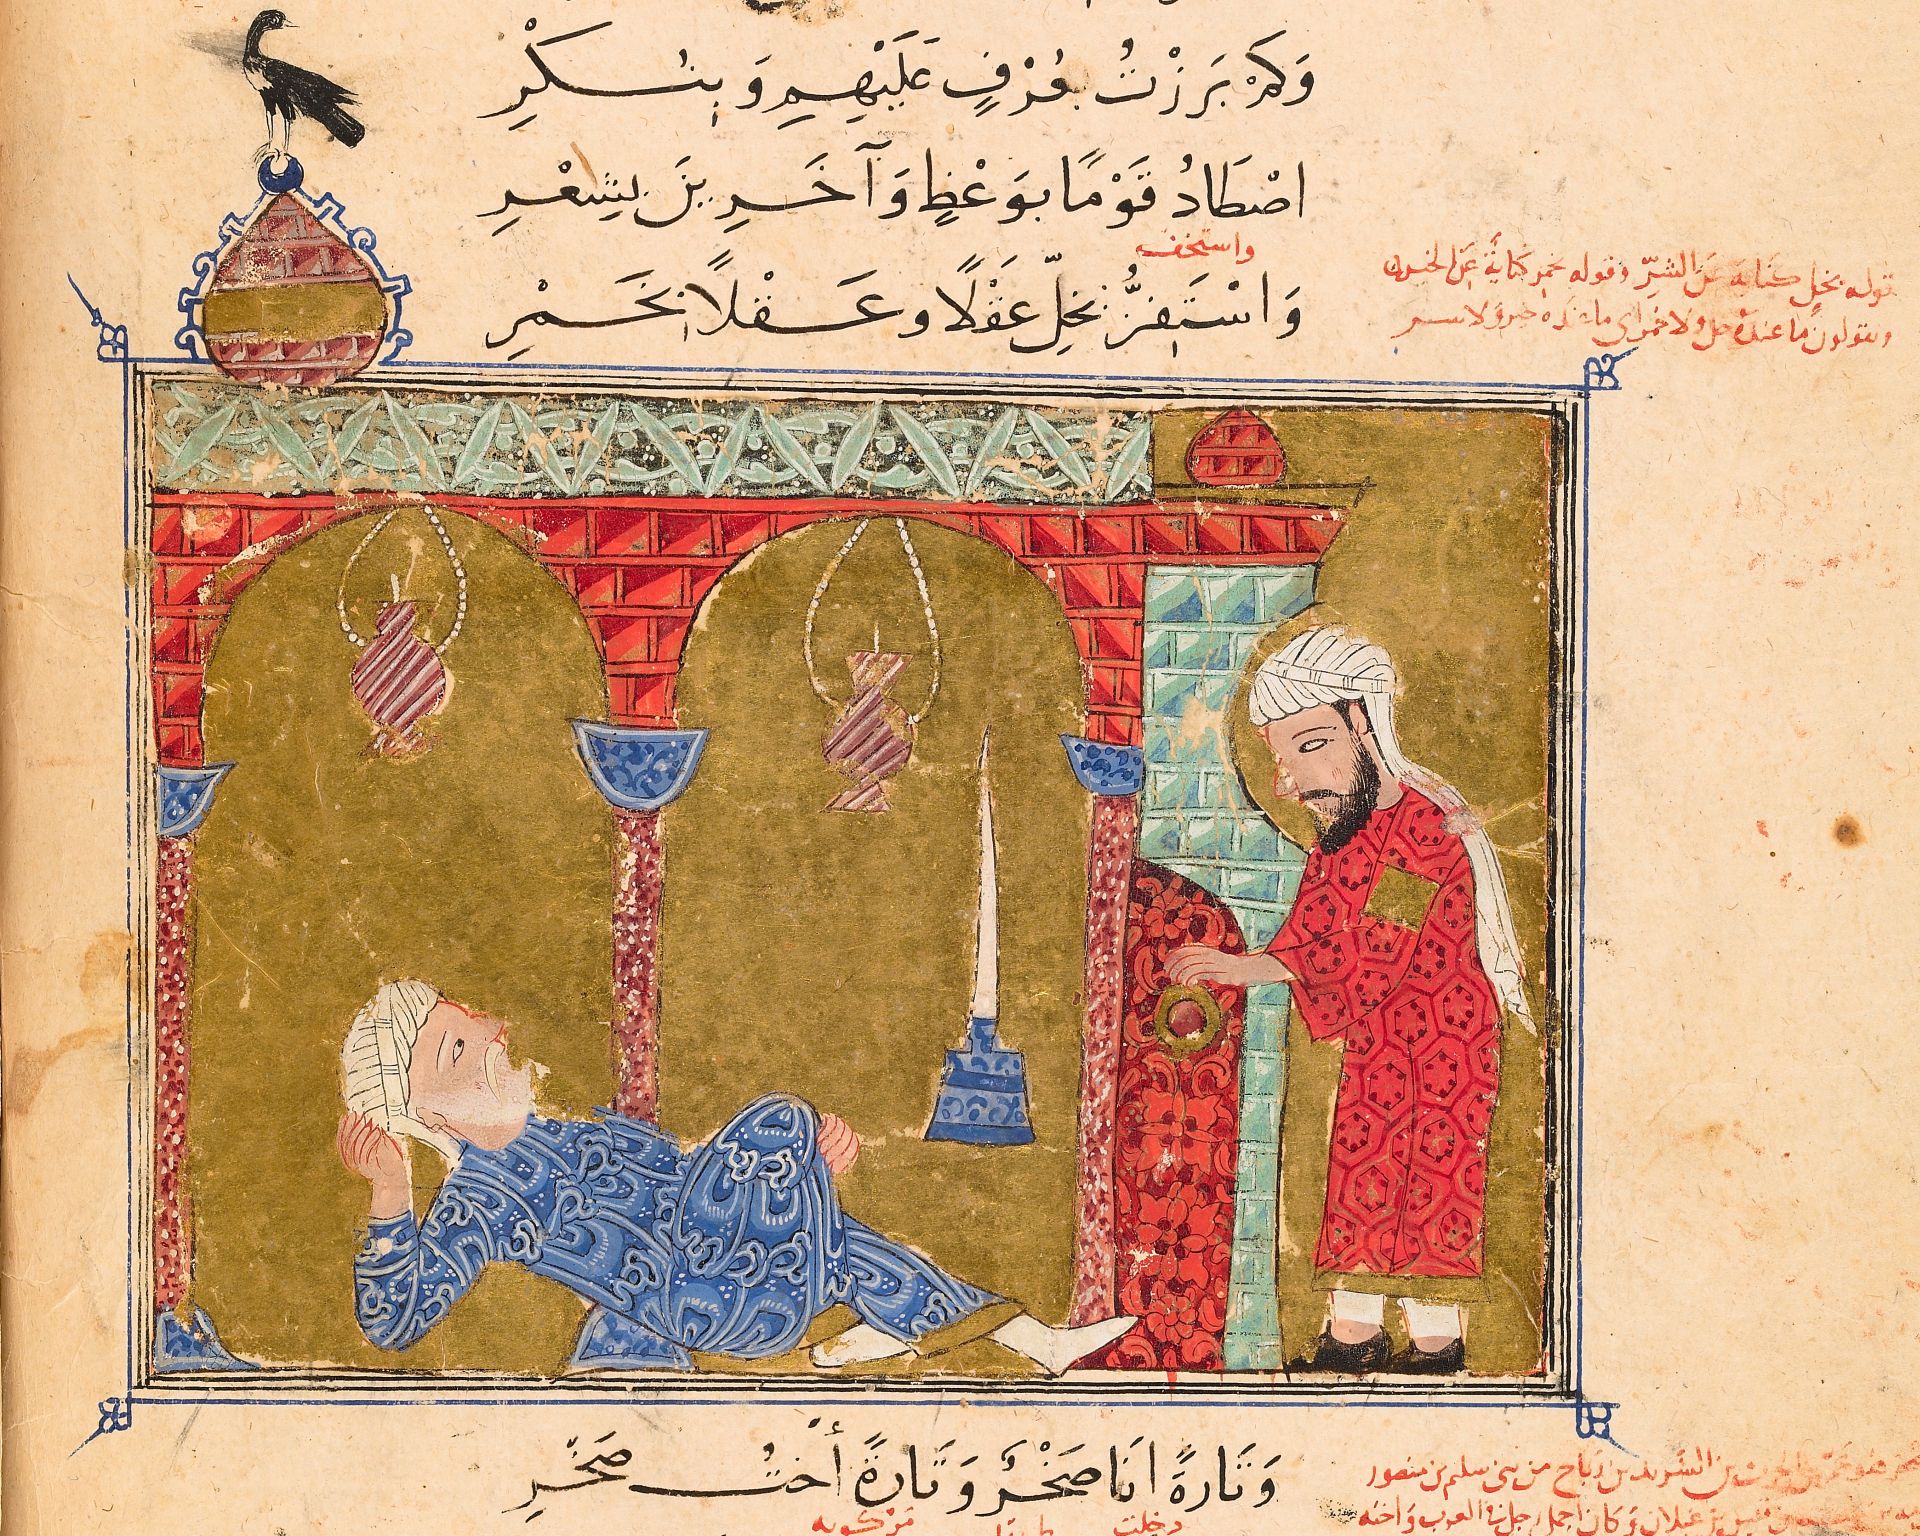 وَكَمْ بَرَزْتُ بِعُرْفٍ عَلَيْهِمِ وَبِنُكْرِ
اصْطَادُ قَوْمًا بِوَعْظٍ وَآخَرِينَ بِشِعْرِ
واستخف
وَاسْتَفِزُّ بِخَلٍّ عَقْلًا وعَقْلًا بِخَمْرِ
قوله بخل كناية عن الشر وقوله بخمر كناية عن الخير
ويقولون ما عنده خل ولا خمر اى ما عنده خير ولا شر
وَتَارَةً انَا صَخْرٌ وَتَارَةً أُخْتُ صَخْرِ
بن الشريد بن رباح من بنى سليم بن منصور
بن عيلان وكان اجمل رجل فى العرب واخته
دخلت